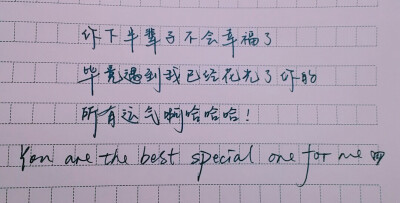 你下半辈子不会幸福了
毕竟遇到我已经花光了你的
所有运气啊哈哈哈!
You are the best special one for me